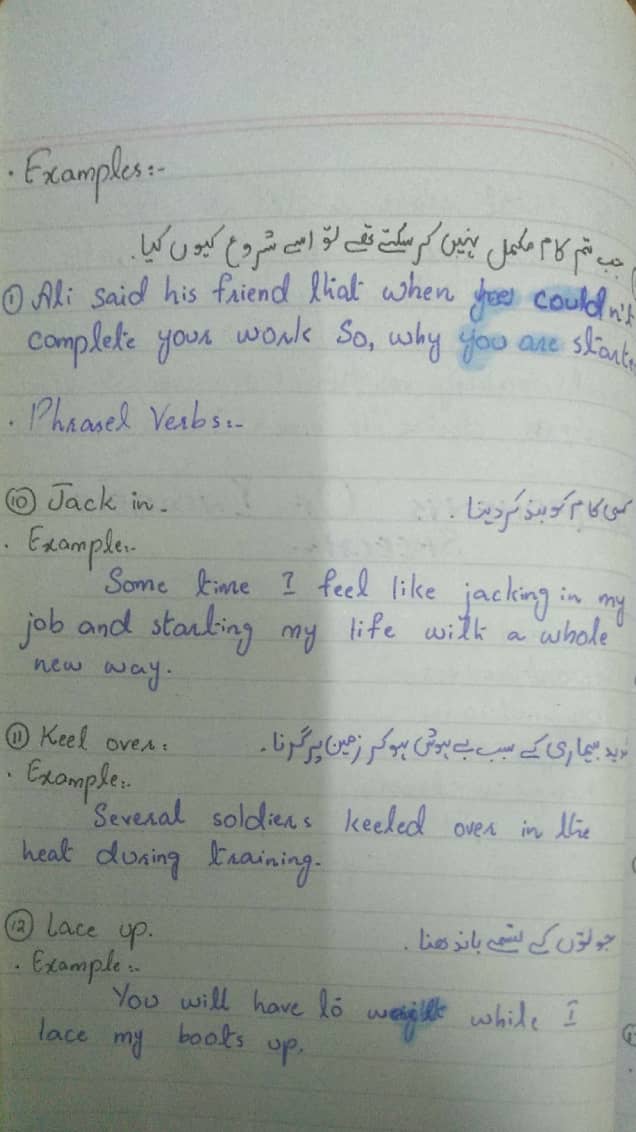 . Examples:-
جب تم کام مکمل نہیں کر سکتے تھے تو اسے شروع کیوں کیا.
① Ali said his friend that when you couldn't
complete your work So, why you are start
. Phrasel Verbs:-
⑩ Jack in.
کسی کام کو بند کر دینا.
. Example:-
Some time I feel like jacking in my
job and starting my life with a whole
new way.
⑪ Keel over:
شدید بیماری کے سبب بے ہوش ہو کر زمین پر گرنا.
. Example:-
Several soldiers keeled over in the
heat during training.
⑫ Lace up.
جوتوں کے تسمے باندھنا.
. Example:-
You will have to while I
lace my boots up.